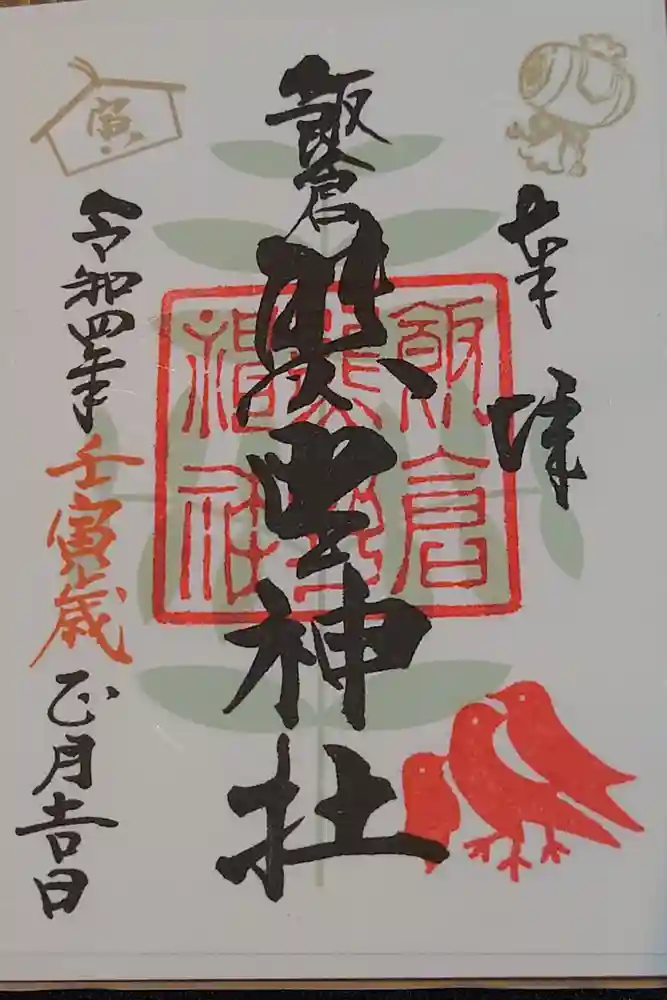 奉拝
飯倉
熊野神社
令和四年壬寅歳正月吉日
寅
飯倉